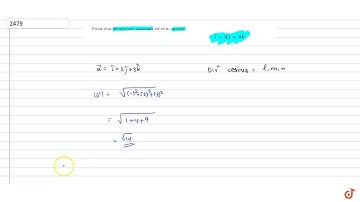 2479
Find the direction cosines of the vector
î + 2ĵ + 3k̂
a⃗ = î + 2ĵ + 3k̂
Dirⁿ cosines = l, m, n
|a⃗| = √(1)²+(2)²+(3)²
= √1+4+9
= √14